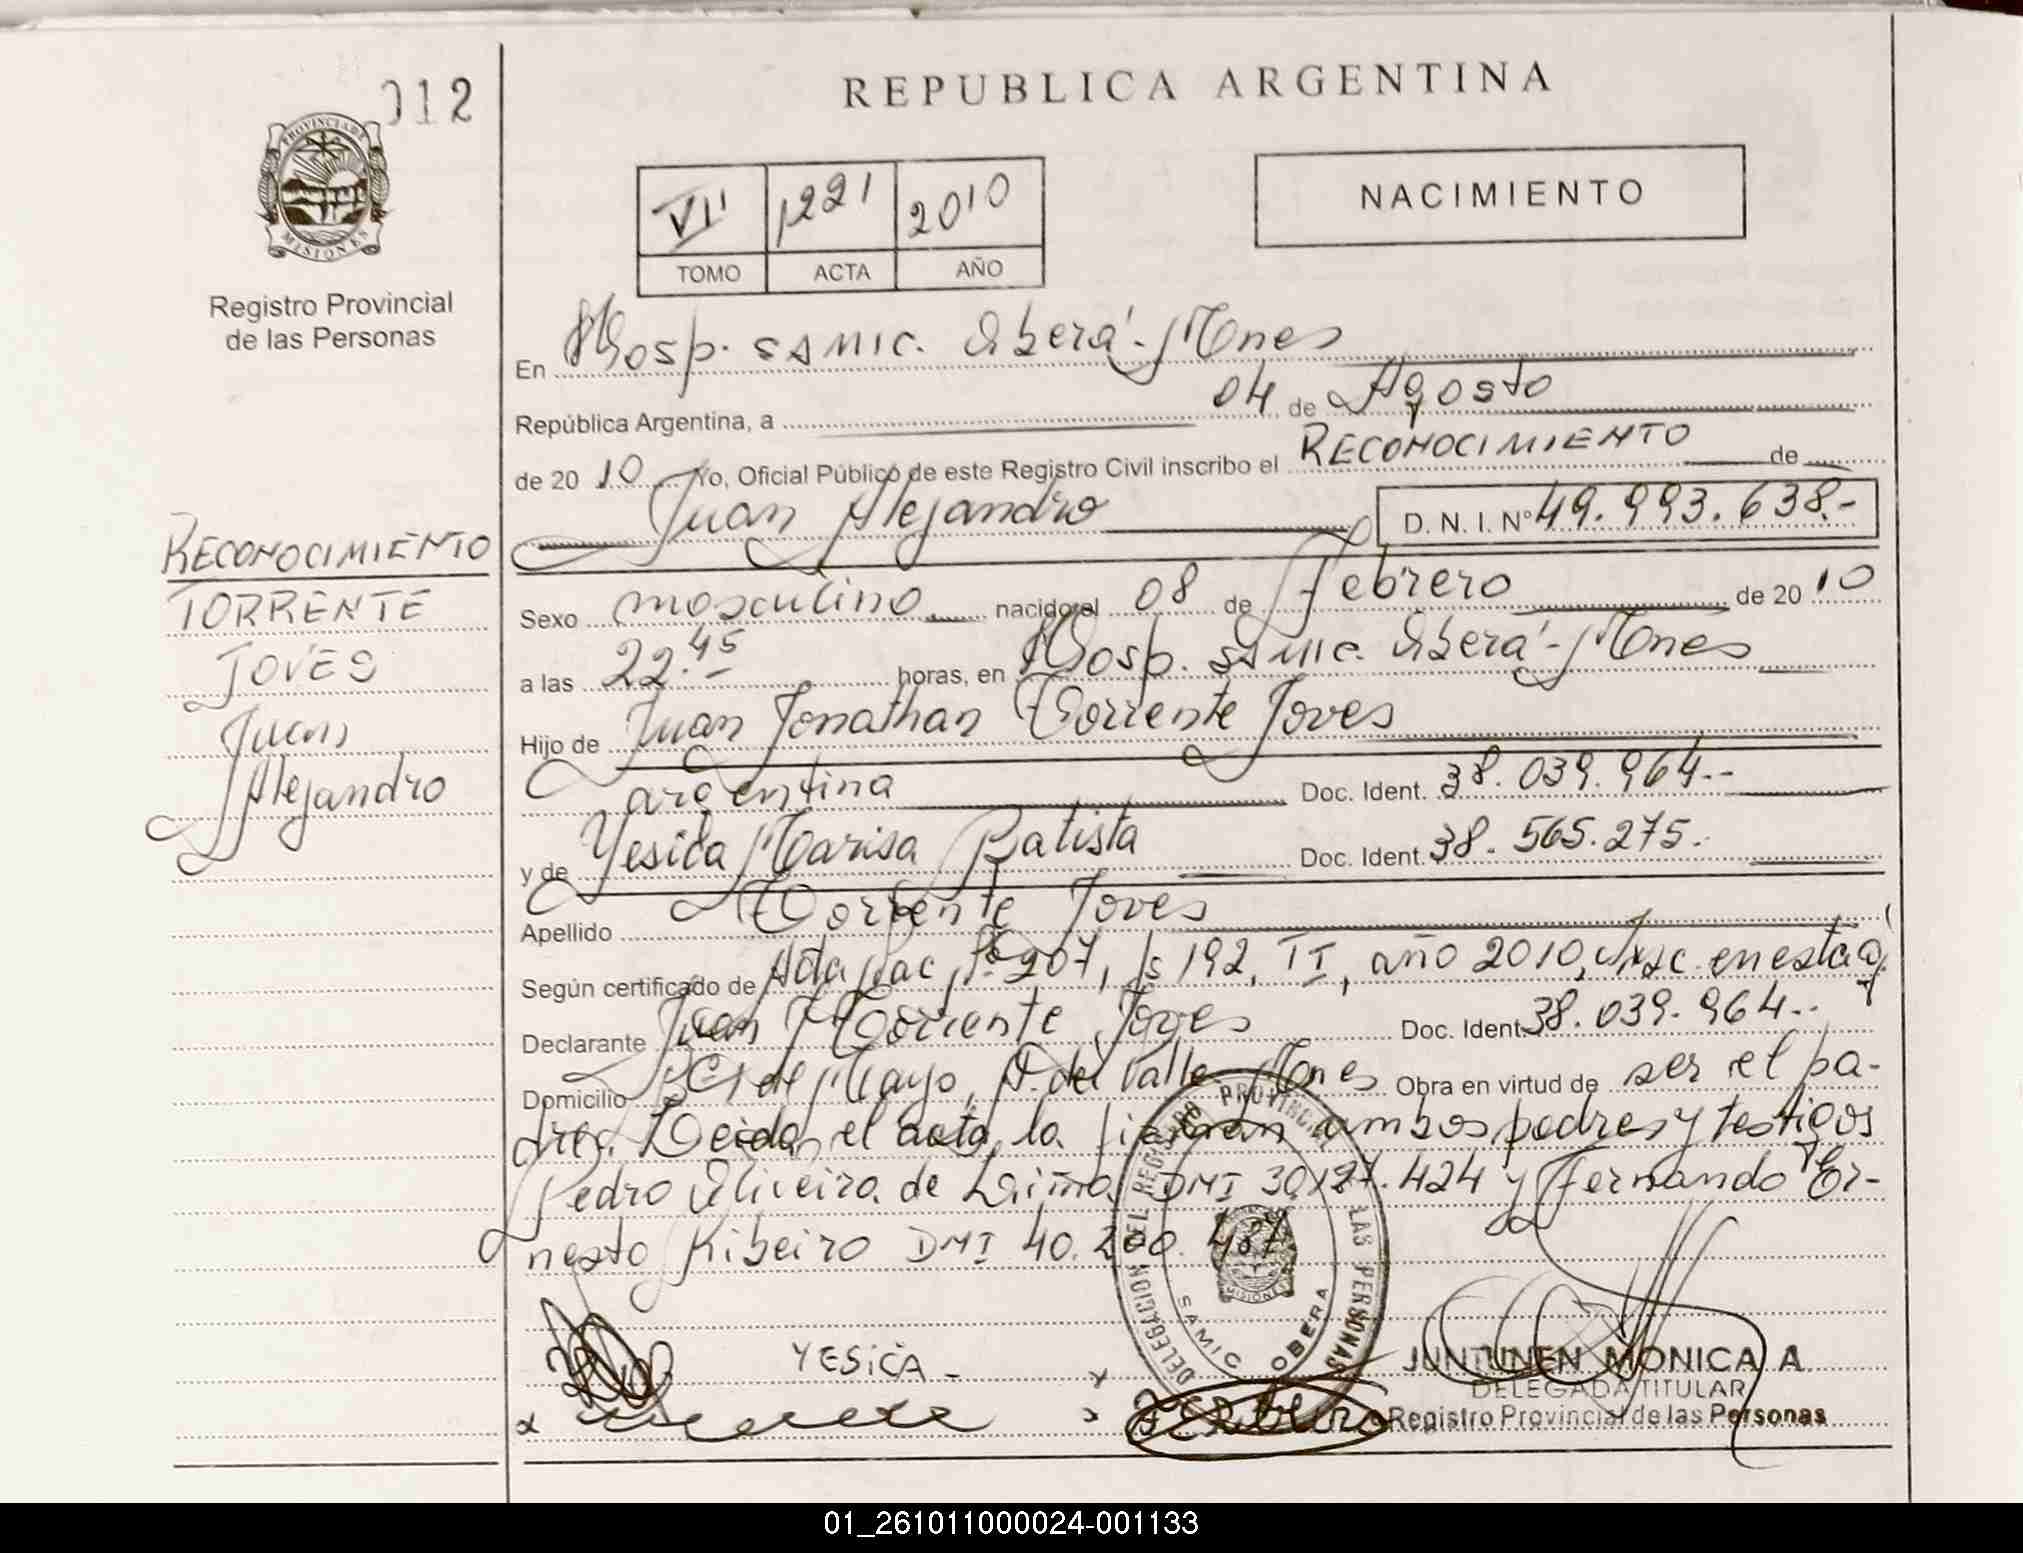 012
REPUBLICA ARGENTINA
PROVINCIA DE
MISIONES
Registro Provincial
de las Personas
VII 1221 2010
TOMO ACTA AÑO
NACIMIENTO
En Hosp. SAMIC. Oberá - Mnes
República Argentina, a 04 de Agosto
de 20 10 Yo, Oficial Público de este Registro Civil inscribo el RECONOCIMIENTO de
Juan Alejandro D.N.I. Nº 49.993.638.-
RECONOCIMIENTO
TORRENTE
JOVES
Juan
Alejandro
Sexo masculino nacido el 08 de Febrero de 20 10
a las 22.45 horas, en Hosp. SAMIC. Oberá - Mnes
Hijo de Juan Jonathan Torrente Joves
argentina Doc. Ident. 38.039.964.-
y de Yesica Marisa Batista Doc. Ident. 38.565.275.
Apellido Torrente Joves
Según certificado de Acta Nac Nº 207, fs 192, TII, año 2010, Insc. en esta
Declarante Juan J Torrente Joves Doc. Ident. 38.039.964.-
Domicilio de Mayo, A. del Valle Mnes Obra en virtud de ser el pa-
dre. Leida el acta la firman ambos padres y testigos
Pedro Oliveira de Lima DNI 30.127.424 y Fernando Er-
nesto Ribeiro DNI 40.200.487
DELEGACION DEL REGISTRO PROVINCIAL DE LAS PERSONAS
SAMIC OBERA
MISIONES
YESICA -
JUNTUNEN MONICA A
DELEGADA TITULAR
Registro Provincial de las Personas
01_261011000024-001133